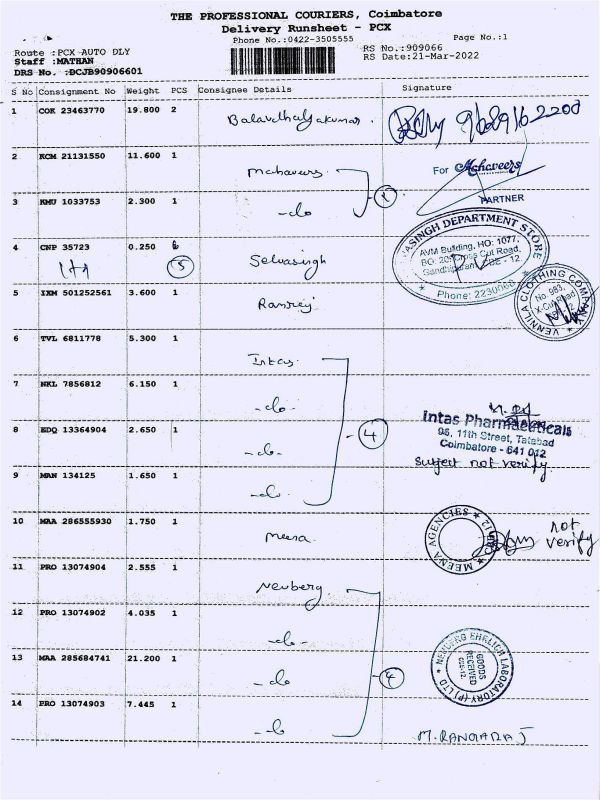 THE PROFESSIONAL COURIERS, Coimbatore
Delivery Runsheet - PCX
Phone No.:0422-3505555
Page No.:1
Route :PCX AUTO DLY
RS No.:909066
Staff :MATHAN
RS Date:21-Mar-2022
DRS No. :DCJB90906601
S No Consignment No Weight PCS Consignee Details Signature
1 COK 23463770 19.800 2
9689162200
2 KCM 21131550 11.600 1 Mahaveers
For Mahaveers
PARTNER
3 KMU 1033753 2.300 1 -do
4 CNP 35723 0.250 Selvasingh
1+1 5
ASINGH DEPARTMENT STORE
AVM Building, HO: 1077,
Cut Road,
Gandhipuram, CBE - 12
Phone: 2230066
5 IXM 501252561 3.600 1 Ramrej
VENNILA CLOTHING COMPANY
No. 983,
X-Cut Road
6 TVL 6811778 5.300 1 Intas
7 NKL 7856812 6.150 1 -do-
4
Intas Pharmaceuticals
95, 11th Street, Tatabad
Coimbatore - 641 012
8 EDQ 13364904 2.650 1 -do-
subject not verify
9 MAN 134125 1.650 1 -do-
10 MAA 286555930 1.750 1 Meena
MEENA AGENCIES
not
verify
11 PRO 13074904 2.555 1 Neuberg
12 PRO 13074902 4.035 1 -do-
13 MAA 285684741 21.200 1 -do
4
NEUBERG EHRLICH LABORATORY (P) LTD
GOODS
RECEIVED
CBE-12.
14 PRO 13074903 7.445 1 -do
M. RANGARAJ